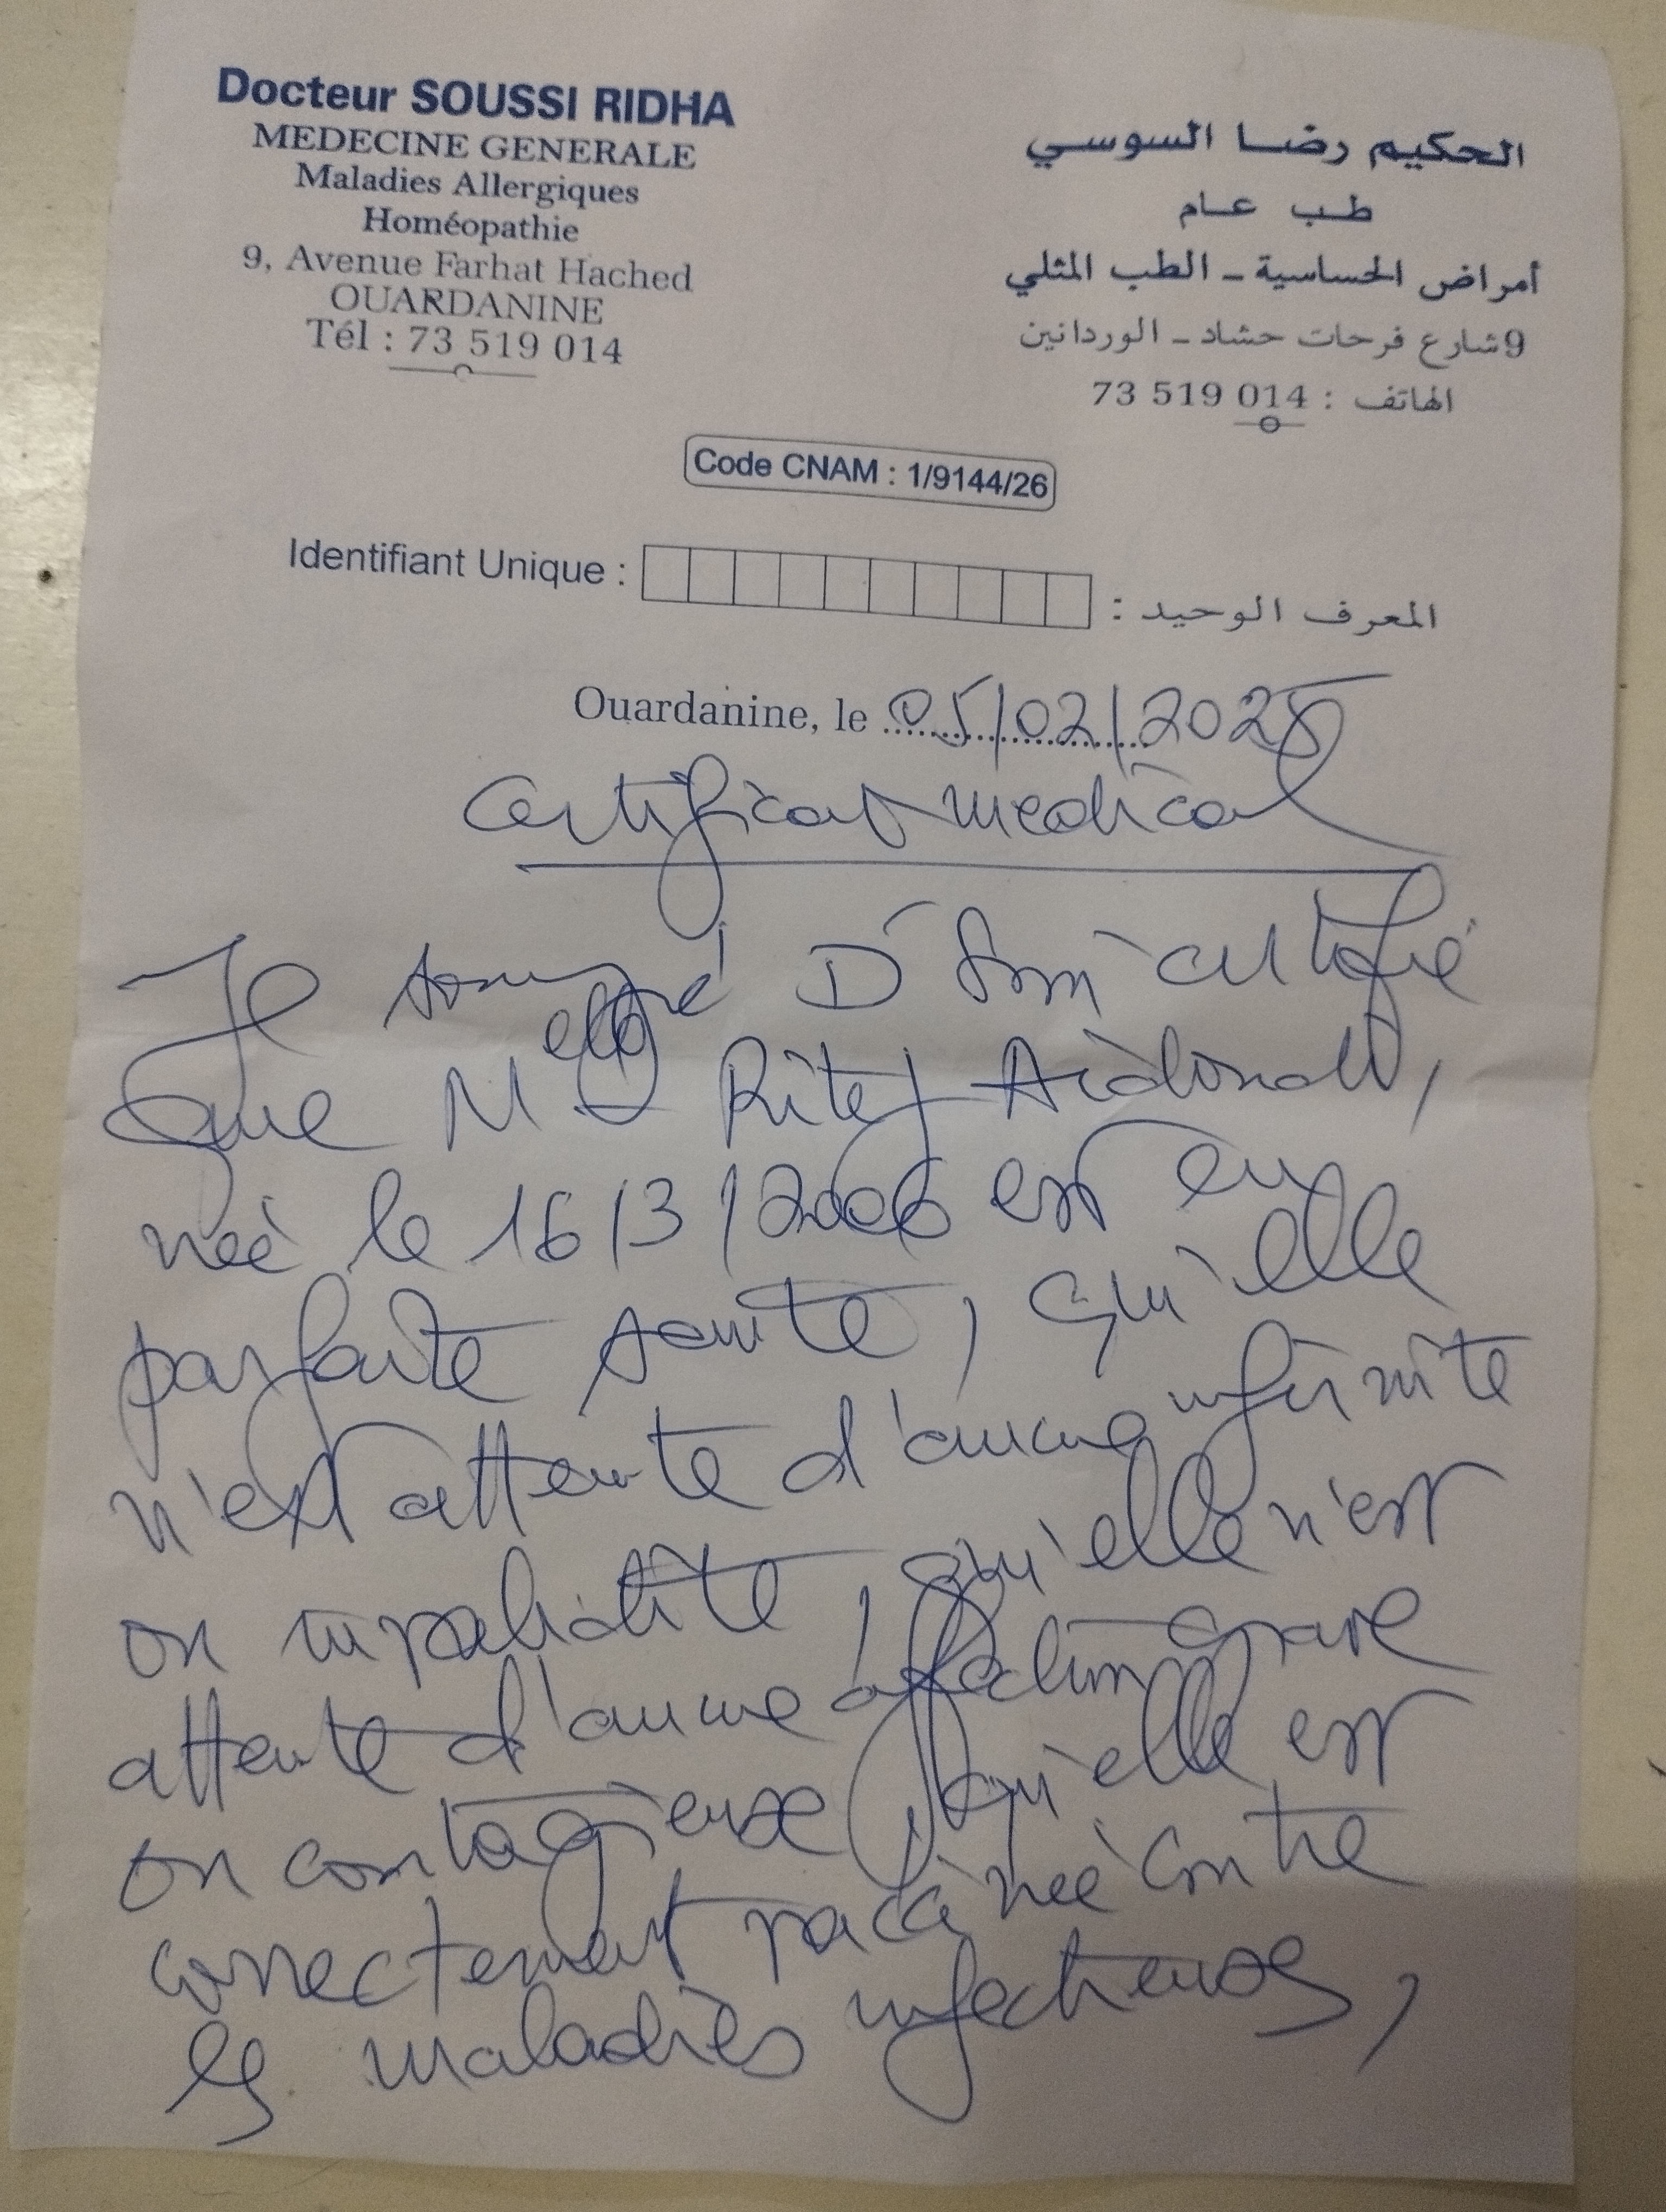 Docteur SOUSSI RIDHA
MEDECINE GENERALE
Maladies Allergiques
Homéopathie
9, Avenue Farhat Hached
OUARDANINE
Tél : 73 519 014
الحكيم رضا السوسي
طب عام
أمراض الحساسية - الطب المثلي
9شارع فرحات حشاد - الوردانين
الهاتف : 014 519 73
Code CNAM : 1/9144/26
Identifiant Unique : المعرف الوحيد :
Ouardanine, le 05/02/2025
Certificat medical
Je soussigné Dr certifie
que Melle Ritej
née le 16/3/2006 est en
parfaite santé, qu'elle
n'est atteinte d'aucune infirmité
ou invalidité, qu'elle n'est
atteinte d'aucune affection grave
ou contagieuse, qu'elle est
correctement vaccinée contre
les maladies infectieuses,